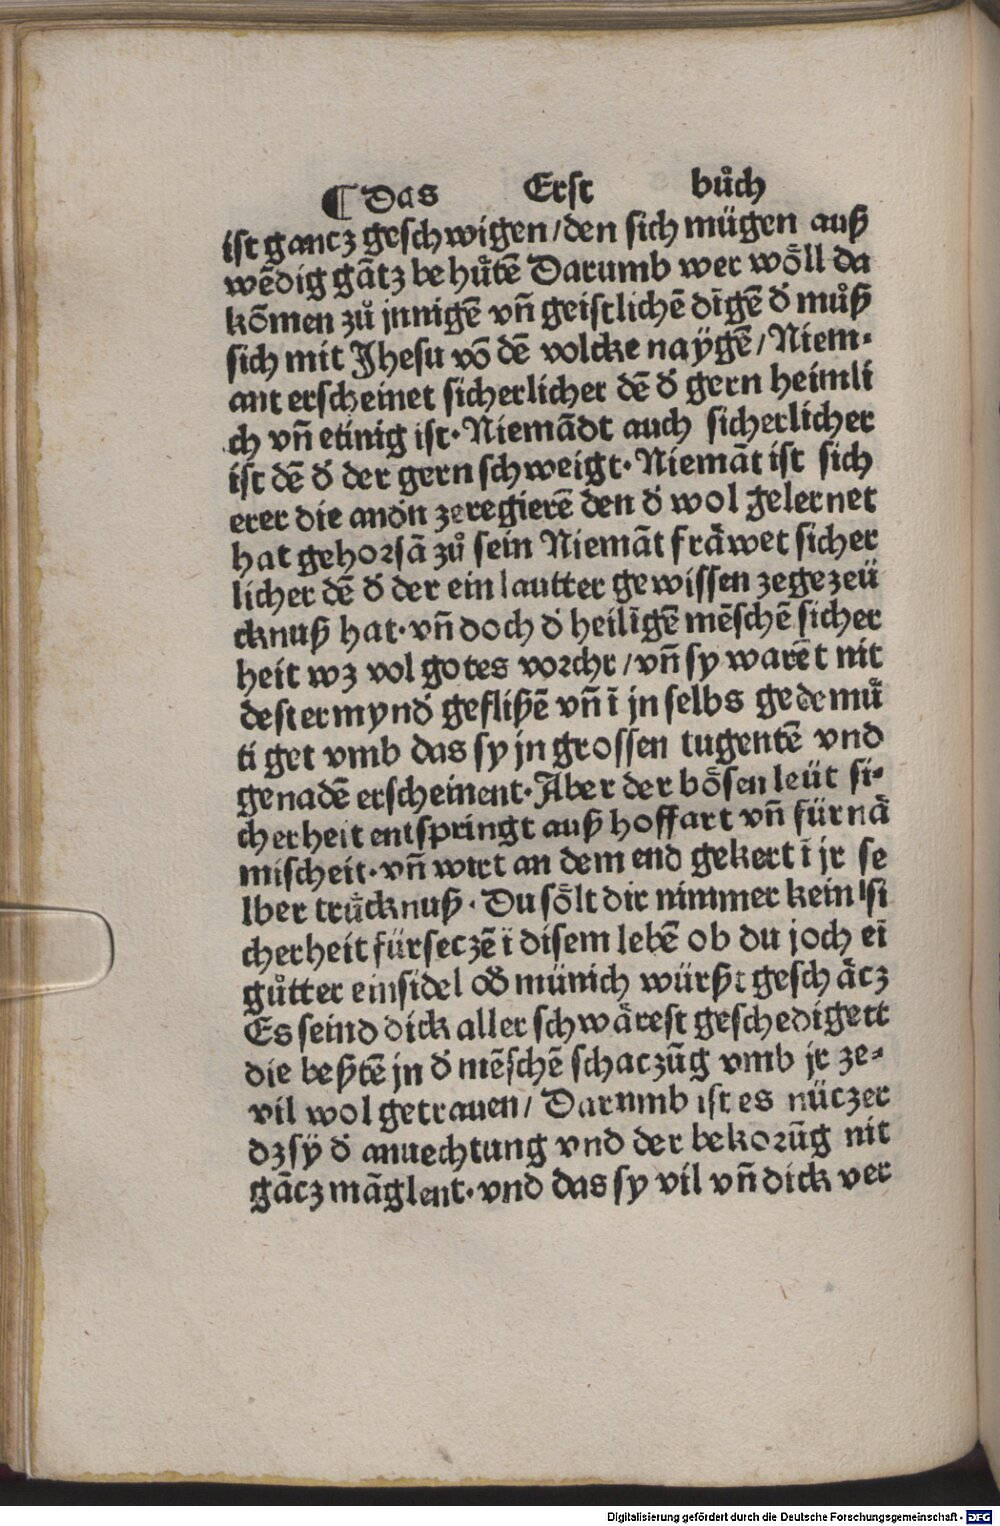 ¶ Das Erst bůch
ist gancz geschwigen/den sich mügen auß
wēdig gātz be hůtē Darumb wer wöll da
kōmen zů jnnigē vn̄ geistlichē dīgē d̕ můß
sich mit Jhesu vō dē volcke naÿgē/Niem⸗
ant erscheinet sicherlicher dē d̕ gern heimli
ch vn̄ etinig ist·Niemādt auch sicherlicher
ist dē d̕ der gern schweigt·Niemāt ist sich
erer die and̕n zeregierē den d̕ wol gelernet
hat gehorsā zů sein Niemāt fräwet sicher
licher dē d̕ der ein lautter gewissen zegezeü
cknuß hat·vn̄ doch d̕ heiligē mēschē sicher
heit wz vol gotes vorcht/vn̄ sy warēt nit
dester mynd̕ geflißē vn̄ ī jn selbs gedemü
ti get vmb das sy jn grossen tugentē vnd
genadē erscheinent·Aber der bösen leüt si⸗
cherheit entspringt auß hoffart vn̄ fürnä
mischeit·vn̄ wirt an dem end gekert ī jr se
lber trücknuß·Du sölt dir nimmer kein si
cherheit fürseczē ī disem lebē ob du joch eī
gůtter einsidel od̕ münich würßt geschäcz
Es seind dick aller schwärest geschedigett
die beßtē jn d̕ mēschē schaczūg vmb jr ze⸗
vil wol getrauen/Darumb ist es nüczer
dz sÿ d̕ anuechtung vnd der bekorūg nit
gācz māglent·vnd das sy vil vn̄ dick ver
Digitalisierung gefördert durch die Deutsche Forschungsgemeinschaft - DFG